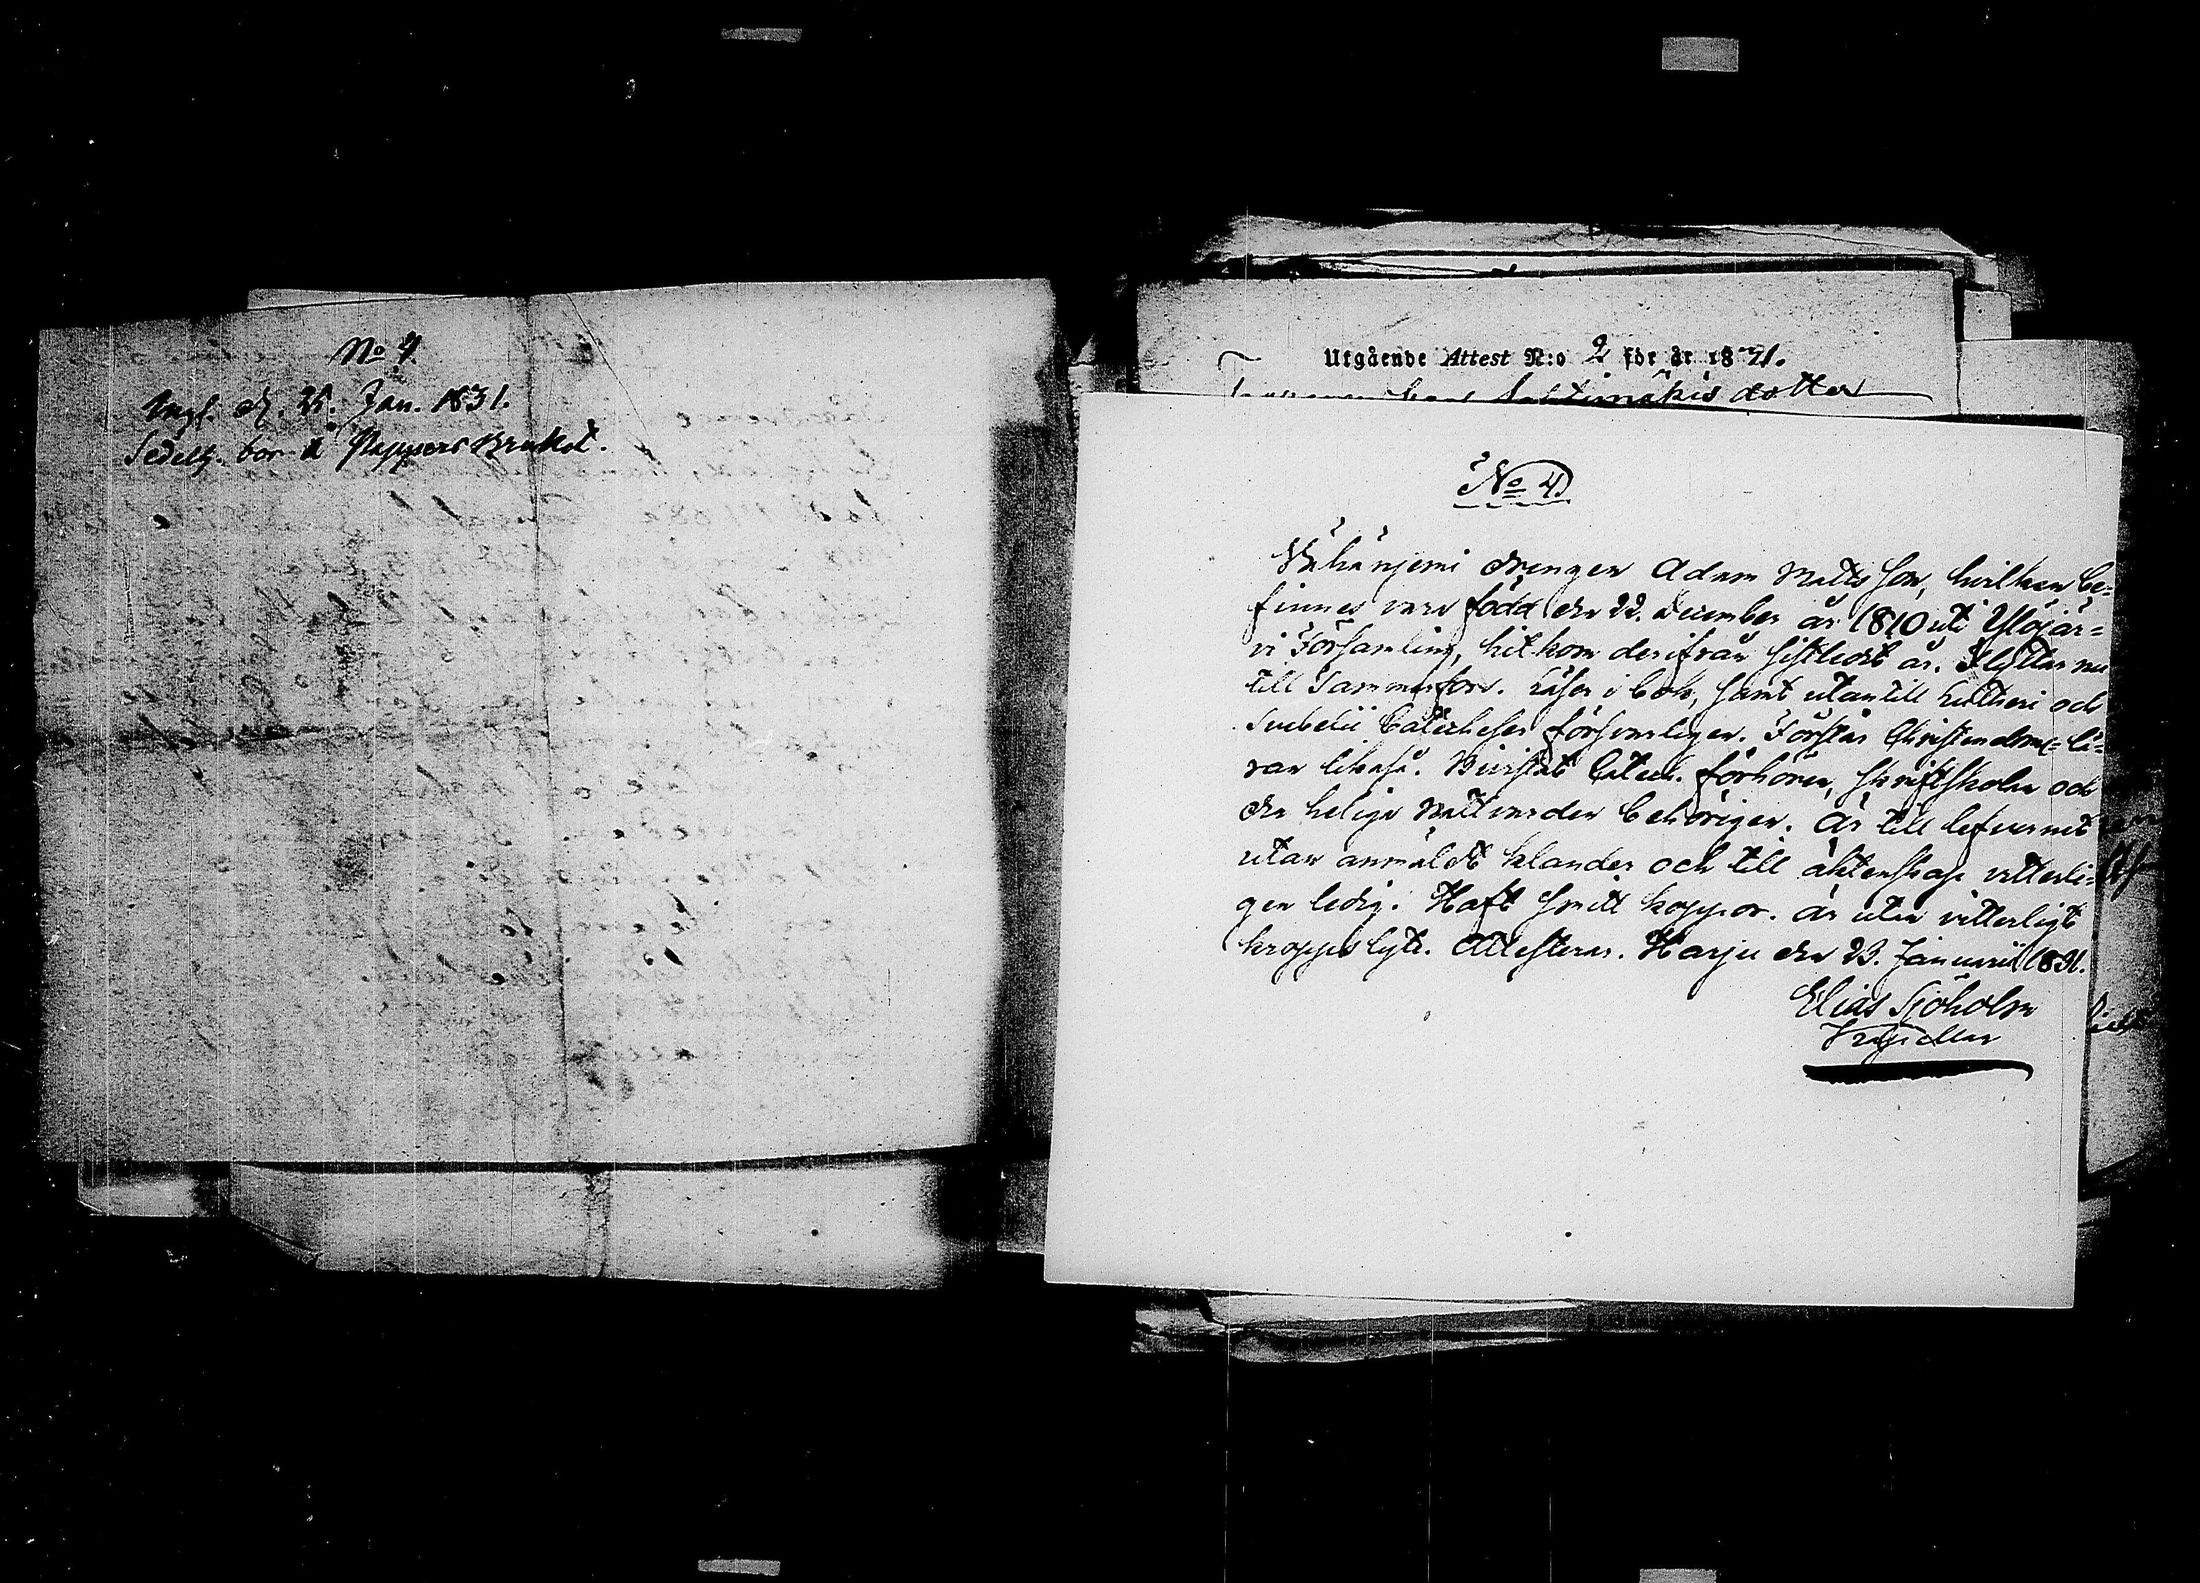 No 4
Ingf. d. 25. Jan. 1831.
Sedelh. bor å Pappers Bruket.
Utgående Attest N:o 2 för år 1871.
dotter
No 4
Vähänjemi drengen Adam Mattsson, hvilken be-
finnes vara född den 22. December år 1810 uti Ylöjär-
vi Församling, hit kom derifrån sistledit år. Flyttar nu
till Tammerfors. Läser i bok, samt utantill Lutheri och
Svebelii Catecheser försvarligen. Förstår Christendoms-lä-
ran likaså. Bevistat Catech. förhören, skriftskolan och
den heliga Nattvarden behörigen. Är till lefvernet
utan anmäldt klander och till äktenskap vitterli-
gen ledig. Haft små koppor. är utan vitterligt
kroppslyte. Attesteras. Harju den 23. Januarii 1831.
Elias Sjöholm
Kapellan